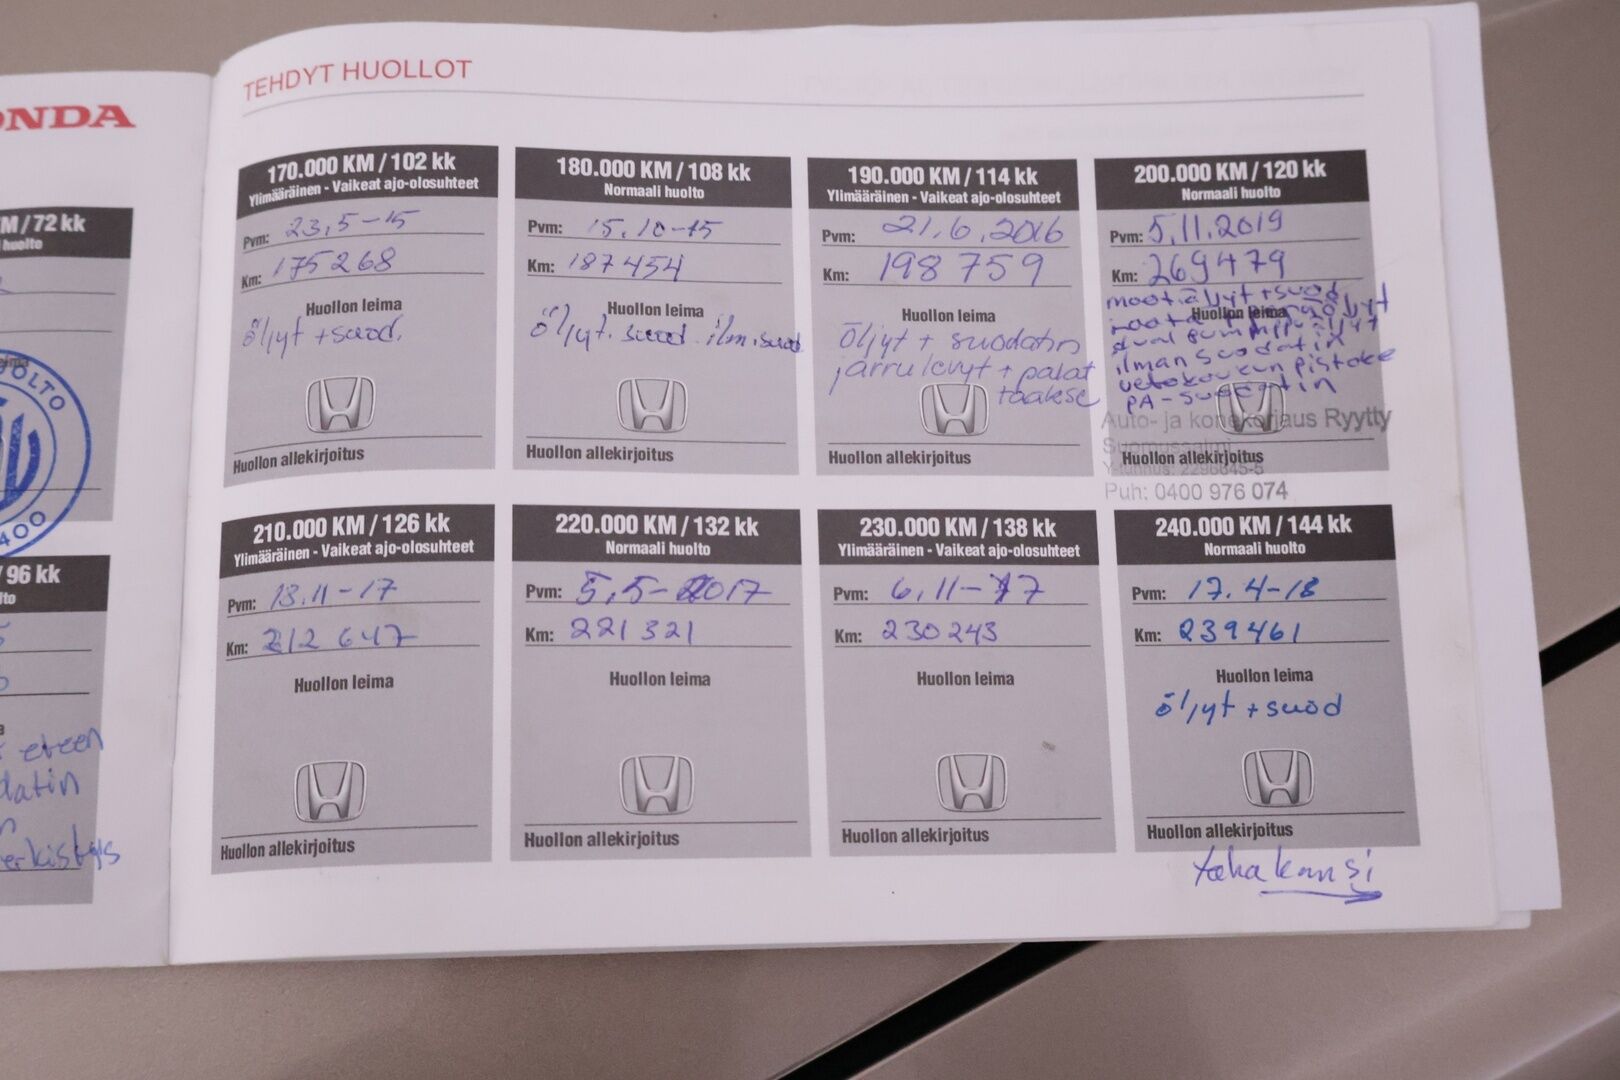 ONDA
M / 72 kk
huolto
OLTO
400
/ 96 kk
lto
eteen
datin
erkistys
TEHDYT HUOLLOT
170.000 KM / 102 kk
Ylimääräinen - Vaikeat ajo-olosuhteet
Pvm: 23,5-15
Km: 175268
Huollon leima
öljyt + suod.
Huollon allekirjoitus
180.000 KM / 108 kk
Normaali huolto
Pvm: 15.10-15
Km: 187454
Huollon leima
öljyt. suod. ilm.suod
Huollon allekirjoitus
190.000 KM / 114 kk
Ylimääräinen - Vaikeat ajo-olosuhteet
Pvm: 21.6.2016
Km: 198 759
Huollon leima
öljyt + suodatin
jarrulevyt + palat
taakse
Huollon allekirjoitus
200.000 KM / 120 kk
Normaali huolto
Pvm: 5.11.2019
Km: 269479
moot.öljyt + suod
Huollon leima
dual pumppu öljyt
ilman suodatin
vetokoukun pistoke
PA-suodatin
Auto- ja konekorjaus Ryytty
Suomussalmi
Huollon allekirjoitus
Y-tunnus: 2296645-5
Puh: 0400 976 074
210.000 KM / 126 kk
Ylimääräinen - Vaikeat ajo-olosuhteet
Pvm: 13.11-17
Km: 212 647
Huollon leima
Huollon allekirjoitus
220.000 KM / 132 kk
Normaali huolto
Pvm: 5,5-2017
Km: 221 321
Huollon leima
Huollon allekirjoitus
230.000 KM / 138 kk
Ylimääräinen - Vaikeat ajo-olosuhteet
Pvm: 6,11-17
Km: 230 243
Huollon leima
Huollon allekirjoitus
240.000 KM / 144 kk
Normaali huolto
Pvm: 17.4-18
Km: 239461
Huollon leima
öljyt + suod
Huollon allekirjoitus
takakansi